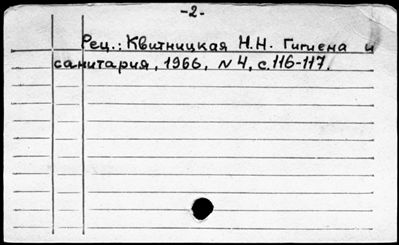 -2-
Рец.: Квитницкая Н.Н. Гигиена и
санитария, 1966, N 4, с.116-117.